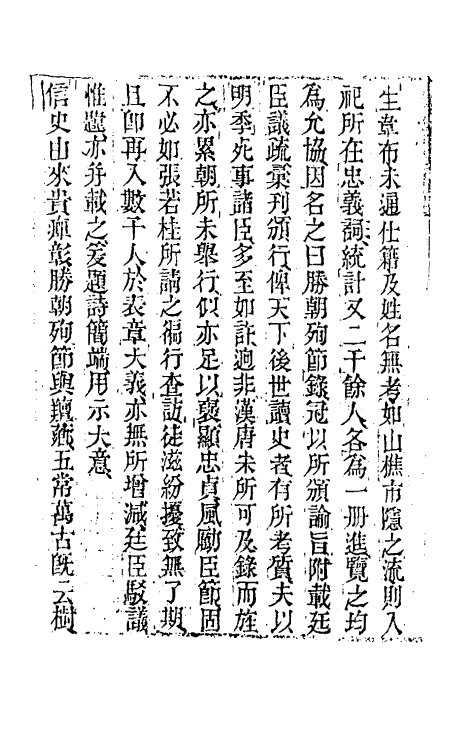 生韋布未通仕籍及姓名無考如山樵市隱之流則入
祀所在忠義祠統計又二千餘人各為一冊進覽之均
為允協因名之曰勝朝殉節錄冠以所頒諭旨附載廷
臣議疏彙刊頒行俾天下後世讀史者有所考質夫以
明季死事諸臣多至如許迥非漢唐宋所可及錄而旌
之亦累朝所未舉行似亦足以褒顯忠貞風勵臣節固
不必如張若桂所請之徧行查訪徒滋紛擾致無了期
且卽再入數千人於表章大義亦無所增減廷臣駁議
惟亦并載之爰題詩簡端用示大意
信史由來貴癉彰勝朝殉節與襃藏五常萬古旣云樹